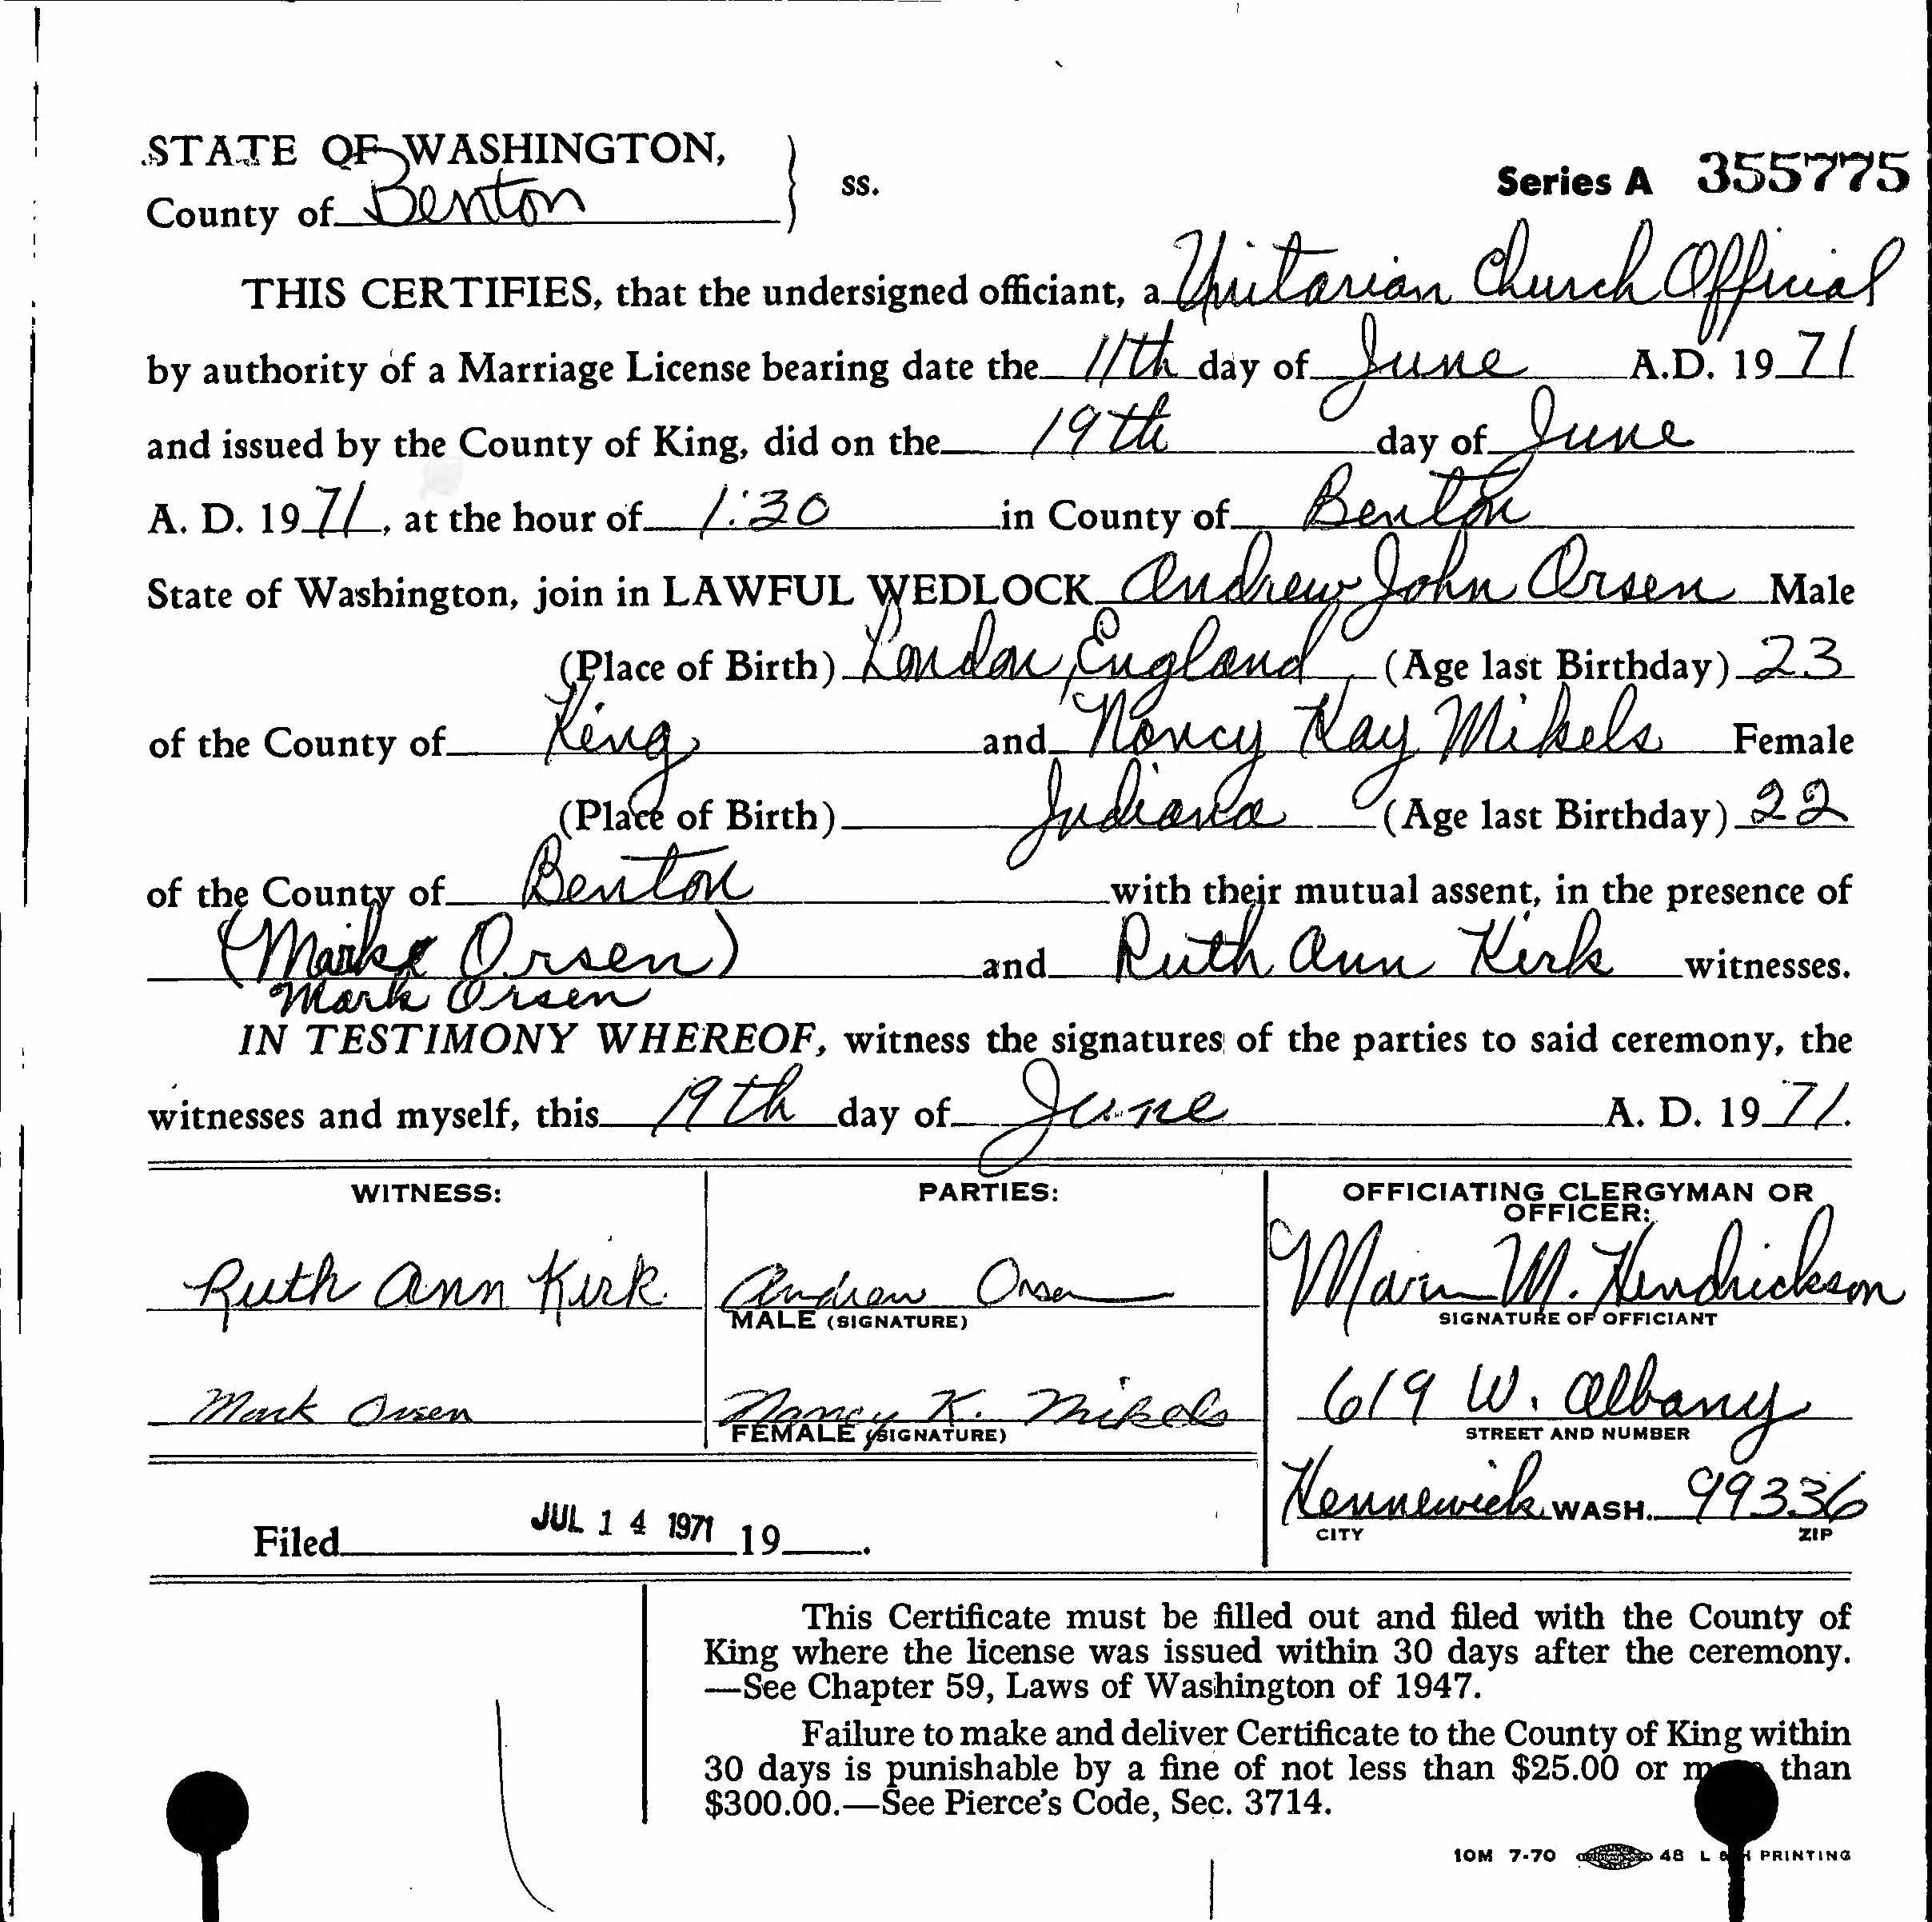 STATE OF WASHINGTON,
County of Benton
ss.
Series A 355775
THIS CERTIFIES, that the undersigned officiant, a Unitarian Church Official
by authority of a Marriage License bearing date the 11th day of June A.D. 19 71
and issued by the County of King, did on the 19th day of June
A. D. 19 71, at the hour of 1:30 in County of Benton
State of Washington, join in LAWFUL WEDLOCK Andrew John Orsen Male
(Place of Birth) London, England (Age last Birthday) 23
of the County of King and Nancy Kay Mikels Female
(Place of Birth) Indiana (Age last Birthday) 22
of the County of Benton with their mutual assent, in the presence of
(Mark Orsen) and Ruth Ann Kirk witnesses.
Mark Orsen
IN TESTIMONY WHEREOF, witness the signatures of the parties to said ceremony, the
witnesses and myself, this 19th day of June A. D. 19 71.
WITNESS:
Ruth Ann Kirk
Mark Orsen
PARTIES:
Andrew Orsen
MALE (SIGNATURE)
Nancy K. Mikels
FEMALE (SIGNATURE)
OFFICIATING CLERGYMAN OR
OFFICER:
M. Hendrickson
SIGNATURE OF OFFICIANT
619 W. Albany
STREET AND NUMBER
Kennewick WASH. 99336
CITY ZIP
Filed JUL 14 1971 19 .
This Certificate must be filled out and filed with the County of
King where the license was issued within 30 days after the ceremony.
—See Chapter 59, Laws of Washington of 1947.
Failure to make and deliver Certificate to the County of King within
30 days is punishable by a fine of not less than $25.00 or than
$300.00.—See Pierce's Code, Sec. 3714.
10M 7-70 48 L PRINTING